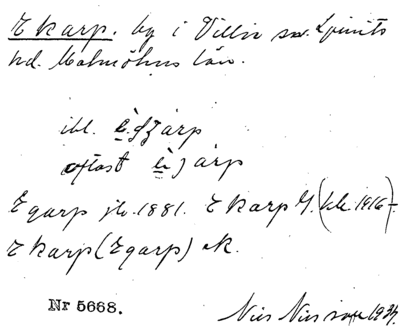 Ekarp. by i Villie sn. Ljunits
hd. Malmöhus län.
ibl. è.gʒarp
oftast è.jarp
Egarp jb. 1881. Ekarp G. (kk 1916)-
Ekarp (Egarp) ek.
Nr 5668.
Nils Nilsson 1934.